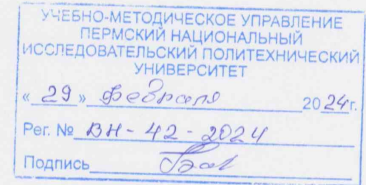 УЧЕБНО-МЕТОДИЧЕСКОЕ УПРАВЛЕНИЕ
ПЕРМСКИЙ НАЦИОНАЛЬНЫЙ
ИССЛЕДОВАТЕЛЬСКИЙ ПОЛИТЕХНИЧЕСКИЙ
УНИВЕРСИТЕТ
« 29 » февраля 2024г.
Рег. № ВН-42-2024
Подпись